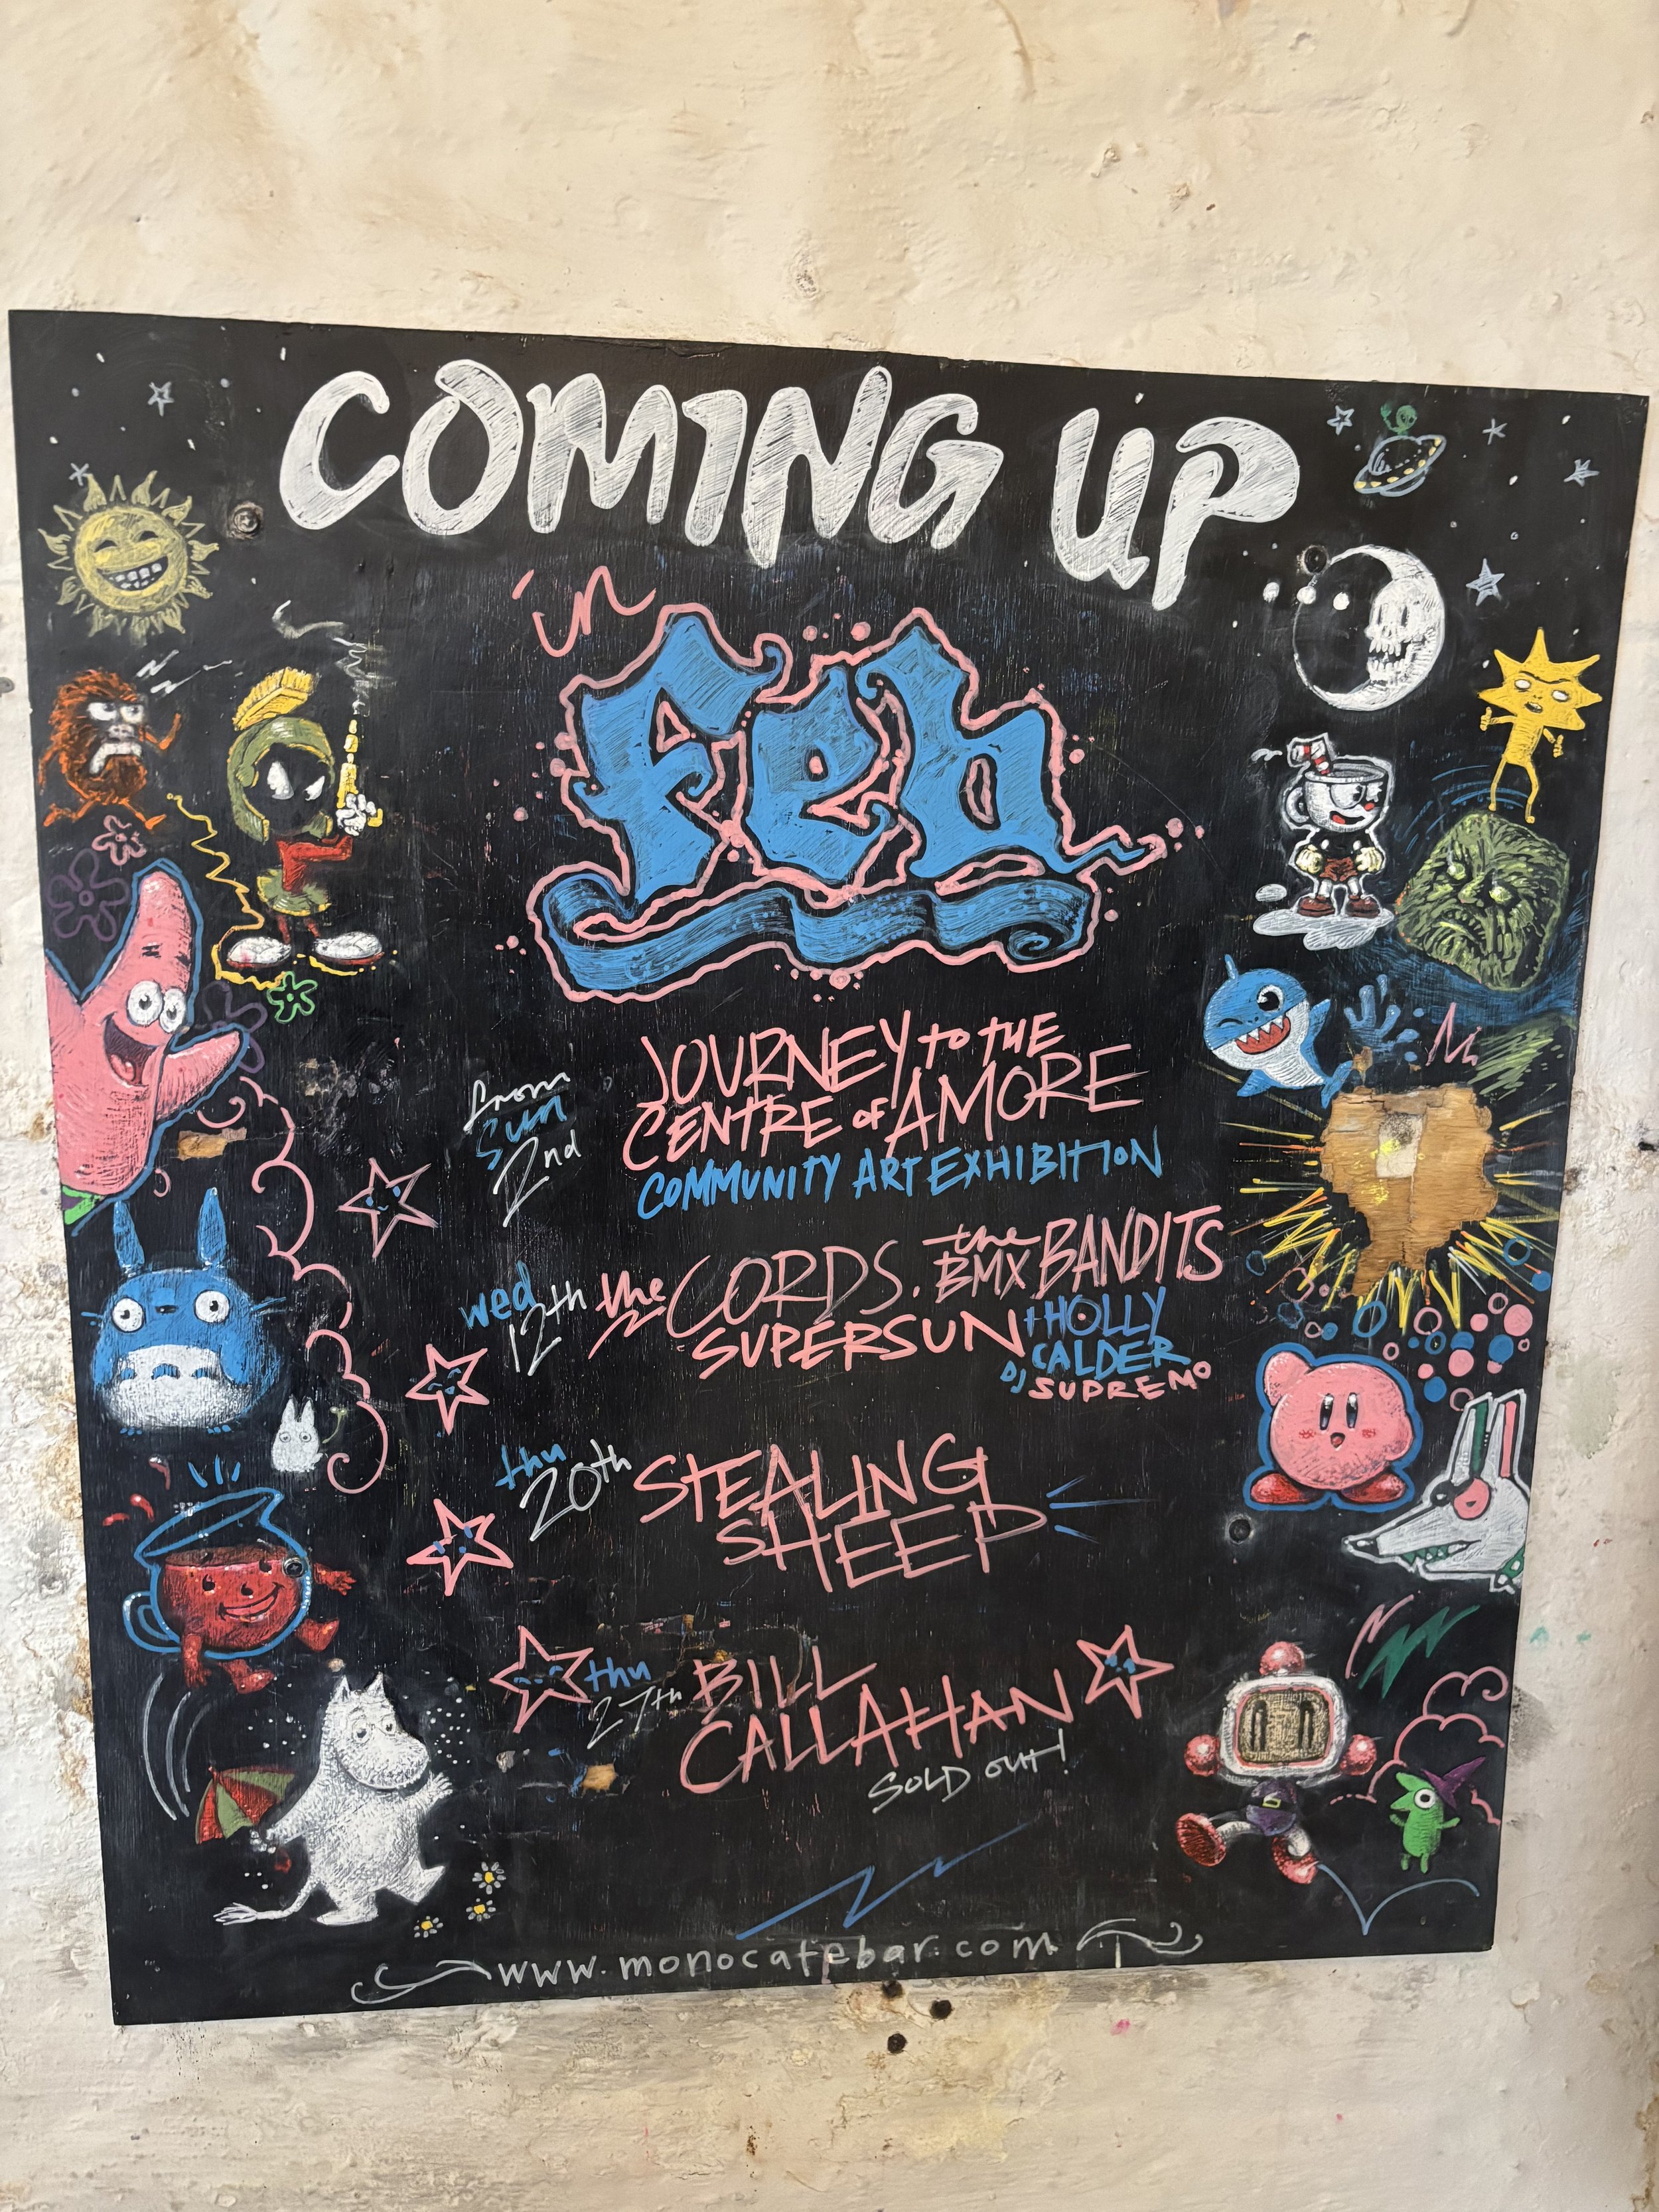 COMING UP
in
Feb
from
Sun
2nd
JOURNEY to the
CENTRE of AMORE
COMMUNITY ART EXHIBITION
wed
12th
the CORDS. the BMX BANDITS
SUPERSUN + HOLLY
CALDER
DJ SUPREMO
thu
20th
STEALING
SHEEP
thu
27th
BILL
CALLAHAN
SOLD OUT!
www.monocafebar.com